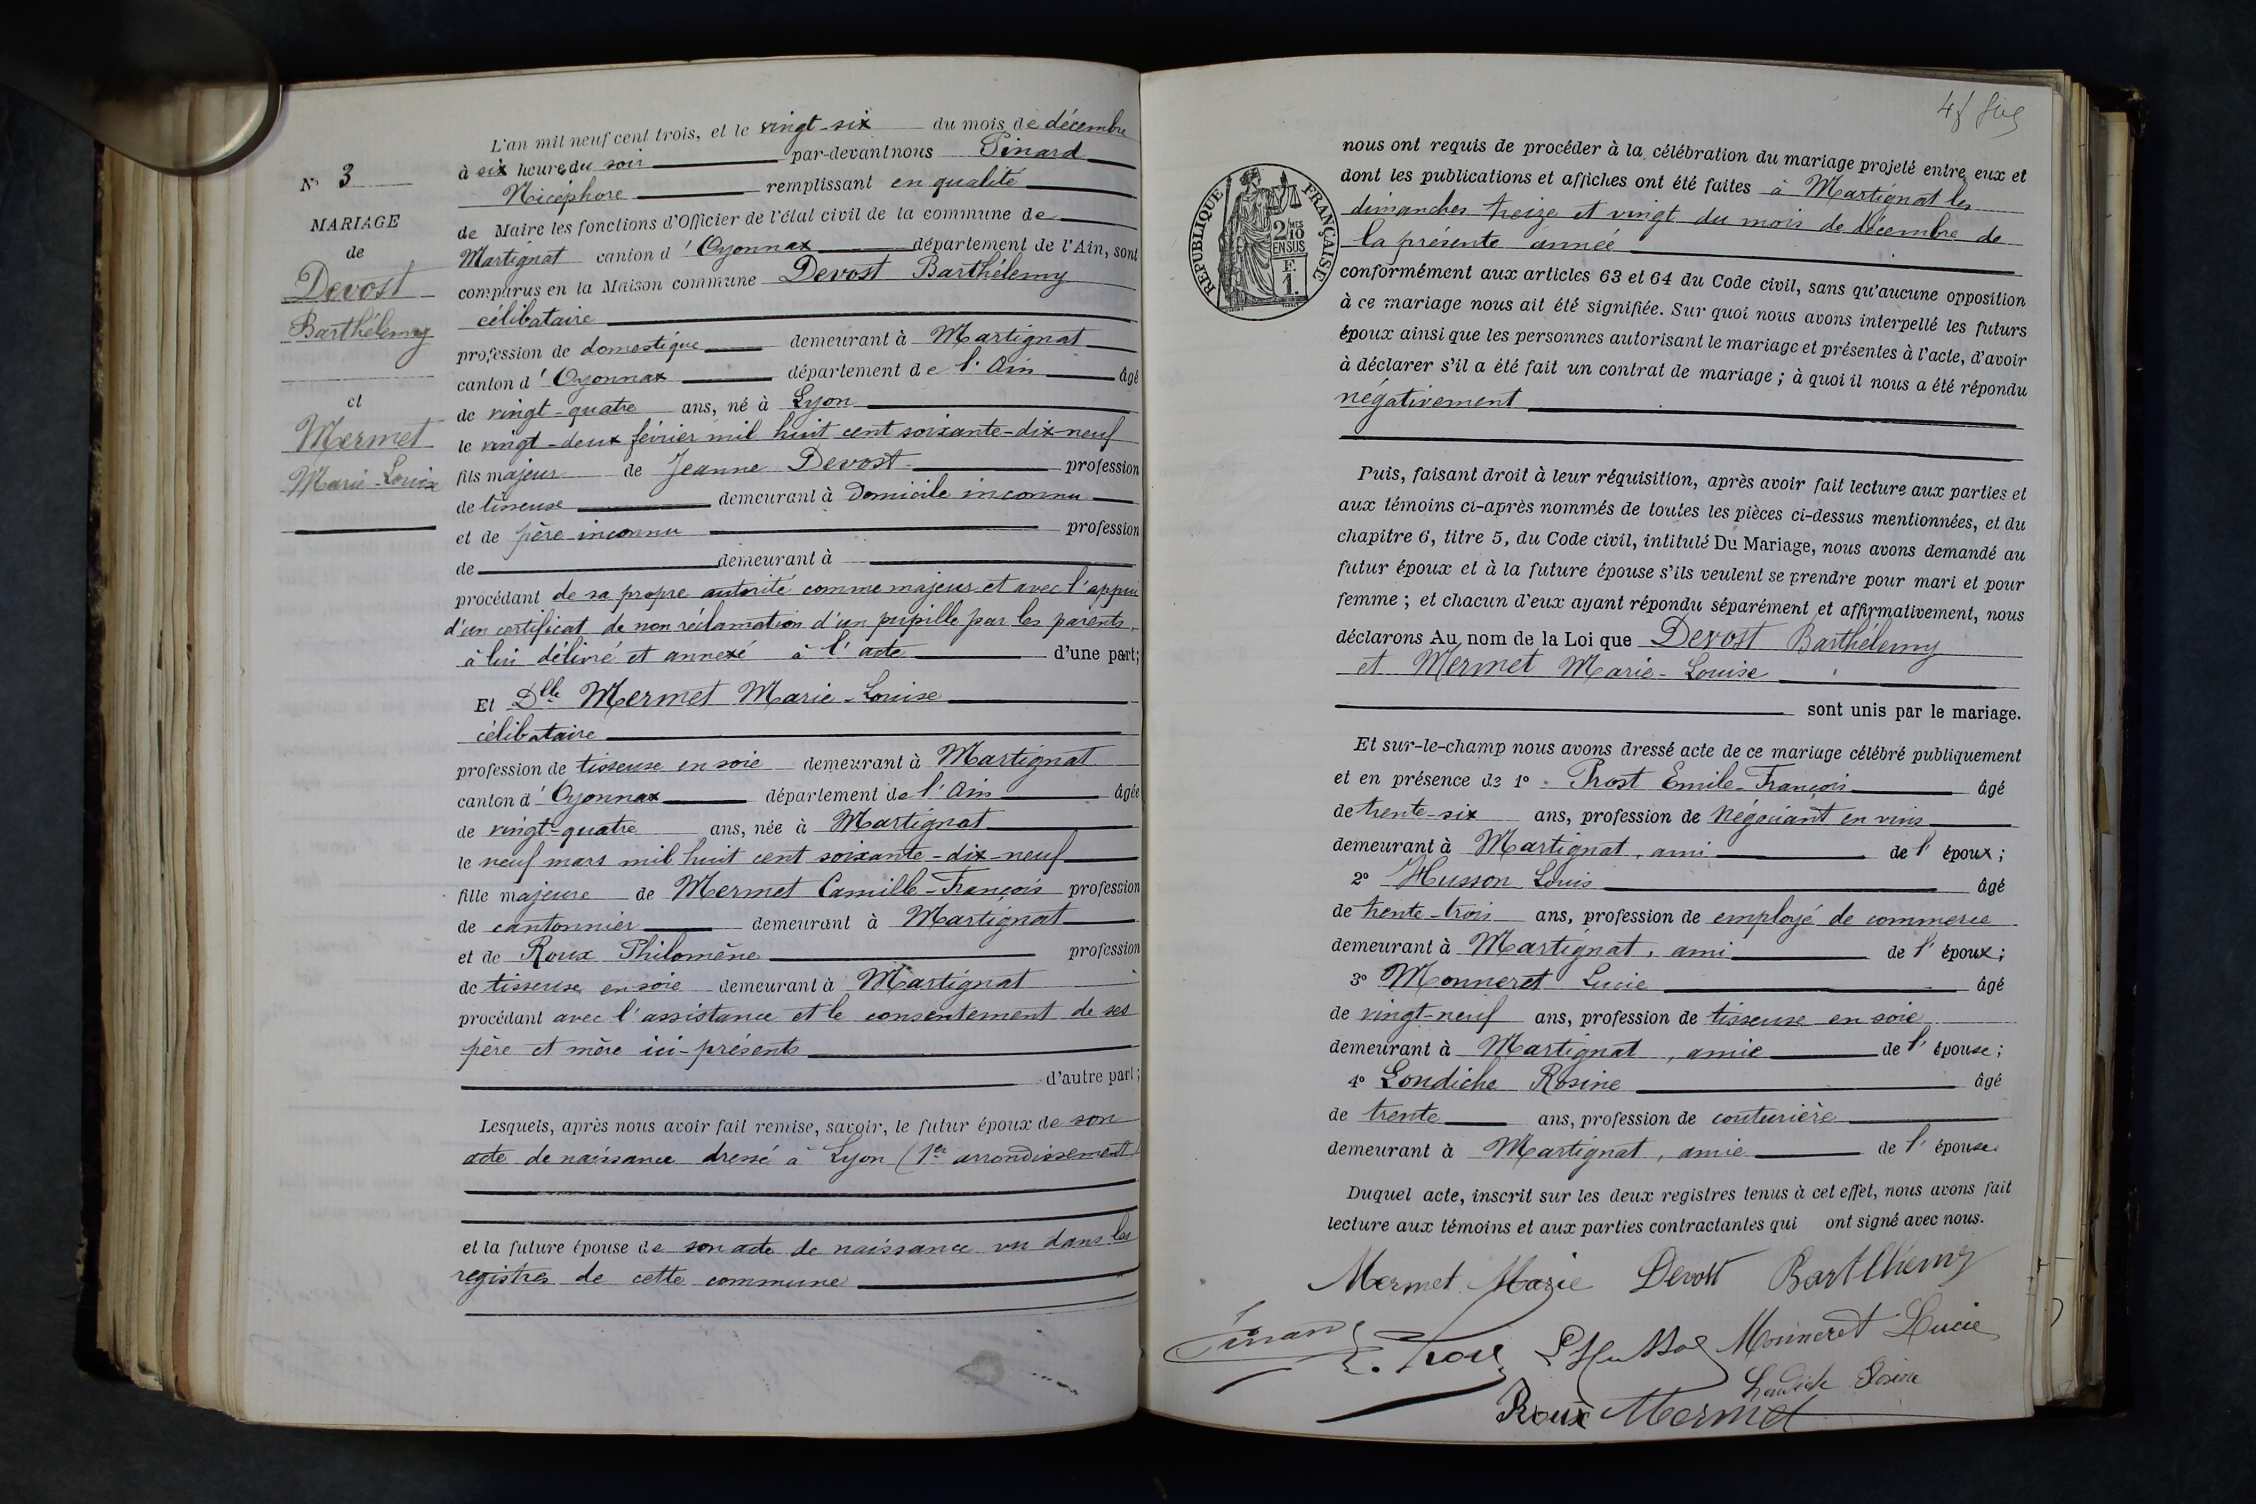 N° 3
MARIAGE
de
Devost
Barthélemy
et
Mermet
Marie-Louise
L'an mil neuf cent trois, et le vingt-six du mois de décembre
à six heures du soir par-devant nous Pinard
Nicéphore remplissant en qualité
de Maire les fonctions d'Officier de l'état civil de la commune de
Martignat canton d'Oyonnax département de l'Ain, sont
comparus en la Maison commune Devost Barthélemy
célibataire
profession de domestique demeurant à Martignat
canton d'Oyonnax département de l'Ain âgé
de vingt-quatre ans, né à Lyon
le vingt-deux février mil huit cent soixante-dix-neuf
fils majeur de Jeanne Devost profession
de tisseuse demeurant à domicile inconnu
et de père inconnu profession
de demeurant à
procédant de sa propre autorité comme majeur et avec l'appui
d'un certificat de non réclamation d'un pupille par les parents,
à lui délivré et annexé à l'acte d'une part;
Et Dlle Mermet Marie-Louise
célibataire
profession de tisseuse en soie demeurant à Martignat
canton d'Oyonnax département de l'Ain âgée
de vingt-quatre ans, née à Martignat
le neuf mars mil huit cent soixante-dix-neuf
fille majeure de Mermet Camille-François profession
de cantonnier demeurant à Martignat
et de Roux Philomène profession
de tisseuse en soie demeurant à Martignat
procédant avec l'assistance et le consentement de ses
père et mère ici-présents
d'autre part;
Lesquels, après nous avoir fait remise, savoir, le futur époux de son
acte de naissance dressé à Lyon (1er arrondissement)
et la future épouse de son acte de naissance vu dans les
registres de cette commune
RÉPUBLIQUE FRANÇAISE
2/10MES
EN SUS
F.
1.
nous ont requis de procéder à la célébration du mariage projeté entre eux et
dont les publications et affiches ont été faites à Martignat les
dimanches treize et vingt du mois de décembre de
la présente année
conformément aux articles 63 et 64 du Code civil, sans qu'aucune opposition
à ce mariage nous ait été signifiée. Sur quoi nous avons interpellé les futurs
époux ainsi que les personnes autorisant le mariage et présentes à l'acte, d'avoir
à déclarer s'il a été fait un contrat de mariage; à quoi il nous a été répondu
négativement
Puis, faisant droit à leur réquisition, après avoir fait lecture aux parties et
aux témoins ci-après nommés de toutes les pièces ci-dessus mentionnées, et du
chapitre 6, titre 5, du Code civil, intitulé Du Mariage, nous avons demandé au
futur époux et à la future épouse s'ils veulent se prendre pour mari et pour
femme; et chacun d'eux ayant répondu séparément et affirmativement, nous
déclarons Au nom de la Loi que Devost Barthélemy
et Mermet Marie-Louise
sont unis par le mariage.
Et sur-le-champ nous avons dressé acte de ce mariage célébré publiquement
et en présence de 1° Prost Emile-François âgé
de trente-six ans, profession de Négociant en vins
demeurant à Martignat, ami de l'époux;
2° Husson Louis âgé
de trente-trois ans, profession de employé de commerce
demeurant à Martignat, ami de l'époux;
3° Monneret Lucie âgé
de vingt-neuf ans, profession de tisseuse en soie
demeurant à Martignat, amie de l'épouse;
4° Londiche Rosine âgé
de trente ans, profession de couturière
demeurant à Martignat, amie de l'épouse
Duquel acte, inscrit sur les deux registres tenus à cet effet, nous avons fait
lecture aux témoins et aux parties contractantes qui ont signé avec nous.
Mermet Marie Devost Barthlemy
Pinard E. Prost L Husson Monneret Lucie
Londiche Rosine
Roux Mermet